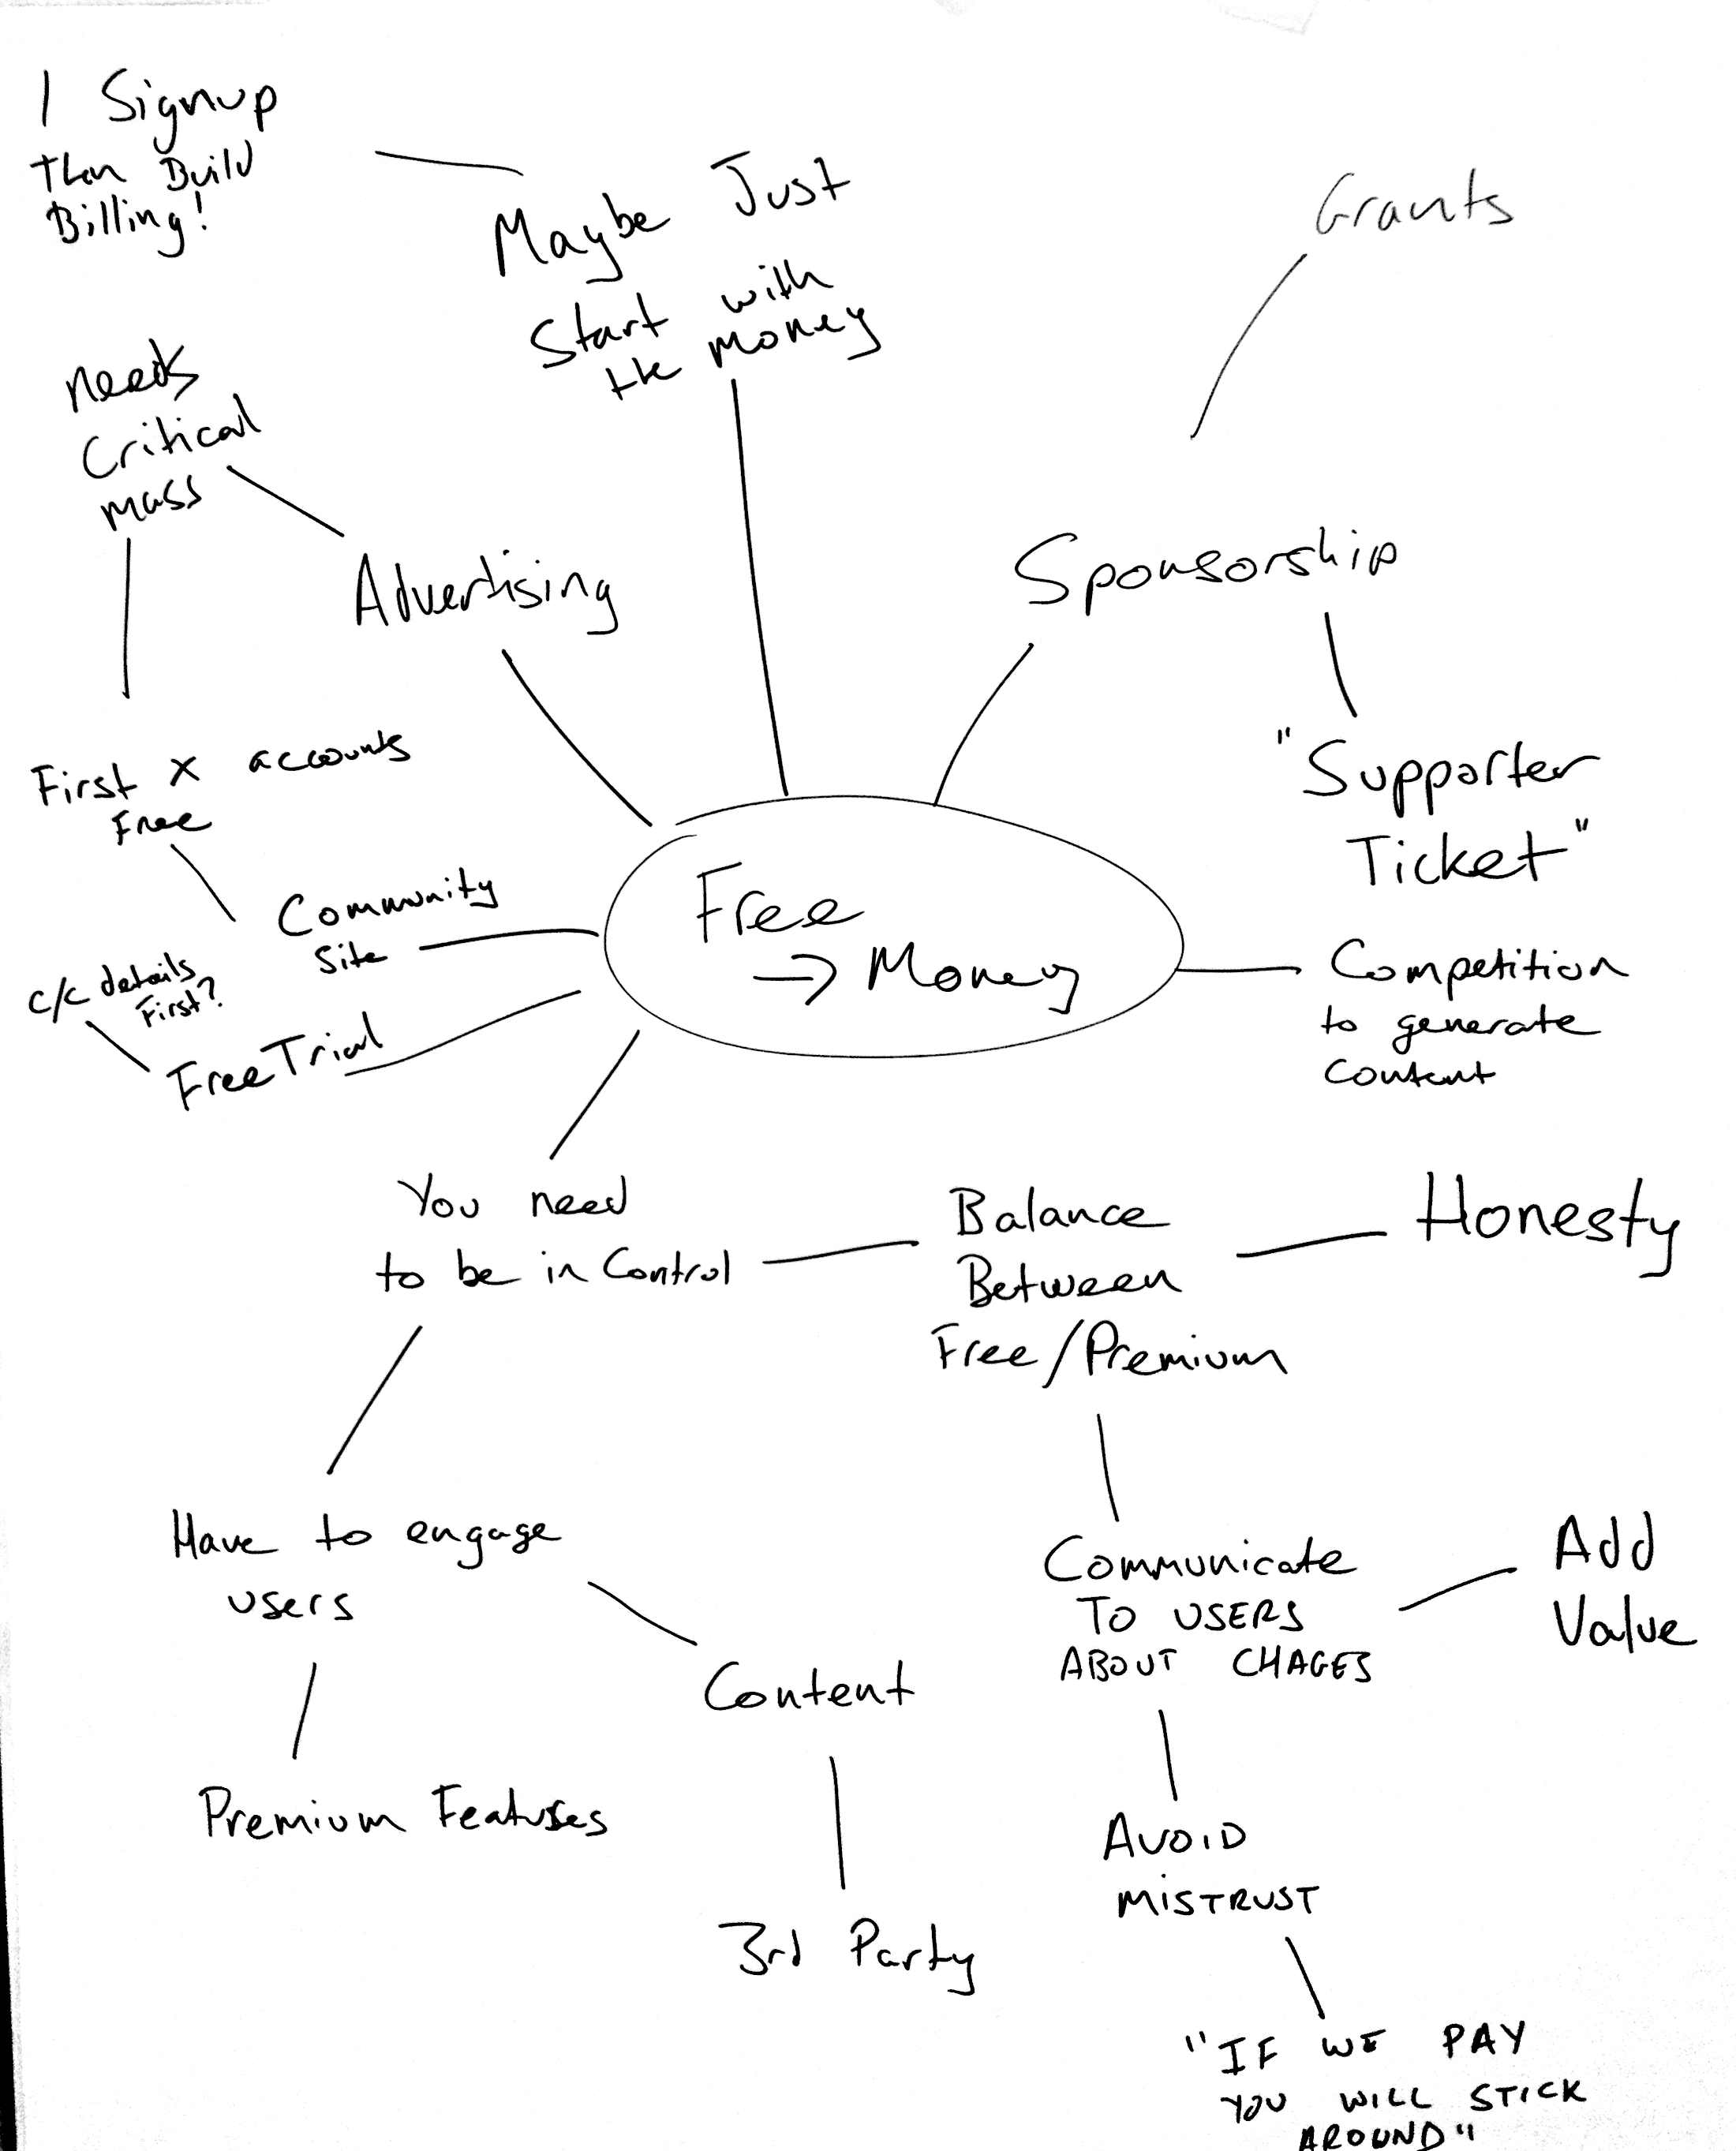 1 Signup
Then Build
Billing!
Maybe Just
Start with
the money
Grants
needs
Critical
mass
Advertising
Sponsorship
"Supporter
Ticket"
First X accounts
Free
Community
Site
c/c details
First?
Free Trial
Free
→ Money
Competition
to generate
Content
You need
to be in Control
Balance
Between
Free/Premium
Honesty
Have to engage
users
Content
Premium Features
3rd Party
Communicate
TO USERS
ABOUT CHAGES
Add
Value
AVOID
MISTRUST
"IF WE PAY
YOU WILL STICK
AROUND"